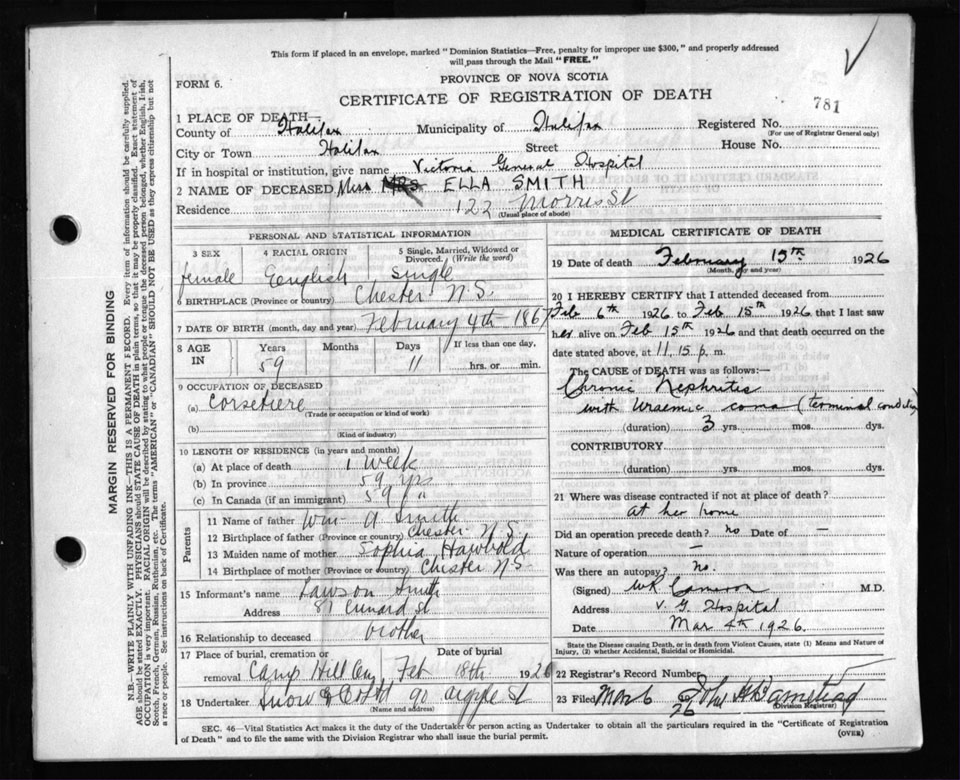 This form if placed in an envelope, marked "Dominion Statistics—Free, penalty for improper use $300," and properly addressed
will pass through the Mail "FREE."
FORM 6.
PROVINCE OF NOVA SCOTIA
CERTIFICATE OF REGISTRATION OF DEATH
781
1 PLACE OF DEATH—
County of Halifax Municipality of Halifax Registered No.
(For use of Registrar General only)
City or Town Halifax Street House No.
If in hospital or institution, give name Victoria General Hospital
2 NAME OF DECEASED Miss MRS ELLA SMITH
Residence 122 Morris St
(Usual place of abode)
PERSONAL AND STATISTICAL INFORMATION
3 SEX 4 RACIAL ORIGIN 5 Single, Married, Widowed or Divorced. (Write the word)
female English single
6 BIRTHPLACE (Province or country) Chester N.S.
7 DATE OF BIRTH (month, day and year) February 4th 1867
8 AGE IN Years Months Days If less than one day.
59 11 hrs. or min.
9 OCCUPATION OF DECEASED
(a) Corsetiere
(Trade or occupation or kind of work)
(b)
(Kind of industry)
10 LENGTH OF RESIDENCE (in years and months)
(a) At place of death 1 week
(b) In province 59 yrs
(c) In Canada (if an immigrant) 59 "
Parents
11 Name of father Wm A Smith
12 Birthplace of father (Province or country) Chester N.S.
13 Maiden name of mother Sophia
14 Birthplace of mother (Province or country) Chester N.S.
15 Informant's name Lawson Smith
Address 81 Cunard St
16 Relationship to deceased brother
17 Place of burial, cremation or removal Date of burial
Camp Hill Cem Feb 18th 1926
18 Undertaker Snow & Co Ltd 90 Argyle St
(Name and address)
MEDICAL CERTIFICATE OF DEATH
19 Date of death February 15th 1926
(Month, day and year)
20 I HEREBY CERTIFY that I attended deceased from
Feb 6th 1926 to Feb 15th 1926 that I last saw
her alive on Feb 15th 1926 and that death occurred on
date stated above, at 11,15 p.m.
The CAUSE of DEATH was as follows:—
Chronic Nephritis
with Uraemic coma (terminal condition
(duration) 3 yrs. mos. dys.
CONTRIBUTORY
(duration) yrs. mos. dys.
21 Where was disease contracted if not at place of death?
at her home
Did an operation precede death? no Date of —
Nature of operation —
Was there an autopsy? no.
(Signed) WR Cameron M.D.
Address V. G. Hospital
Date Mar 4th 1926.
State the Disease causing Death, or in death from Violent Causes, state (1) Means and Nature of
Injury, (2) whether Accidental, Suicidal or Homicidal.
22 Registrar's Record Number
23 Filed Mar 6 26 John
(Division Registrar)
SEC. 46—Vital Statistics Act makes it the duty of the Undertaker or person acting as Undertaker to obtain all the particulars required in the "Certificate of Registration
of Death" and to file the same with the Division Registrar who shall issue the burial permit.
(OVER)
MARGIN RESERVED FOR BINDING
N.B.—WRITE PLAINLY WITH UNFADING INK—THIS IS A PERMANENT RECORD. Every item of information should be carefully supplied.
AGE should be stated EXACTLY. PHYSICIANS should STATE CAUSE OF DEATH in plain terms, so that it may be properly classified. Exact statement of
OCCUPATION is very important. RACIAL ORIGIN will be described by stating to what people or tongue the deceased person belonged, whether English, Irish,
Scotch, French, German, Russian, Ruthenian, etc. The terms "AMERICAN" or "CANADIAN" SHOULD NOT BE USED as they express citizenship but not
a race or people. See instructions on back of Certificate.